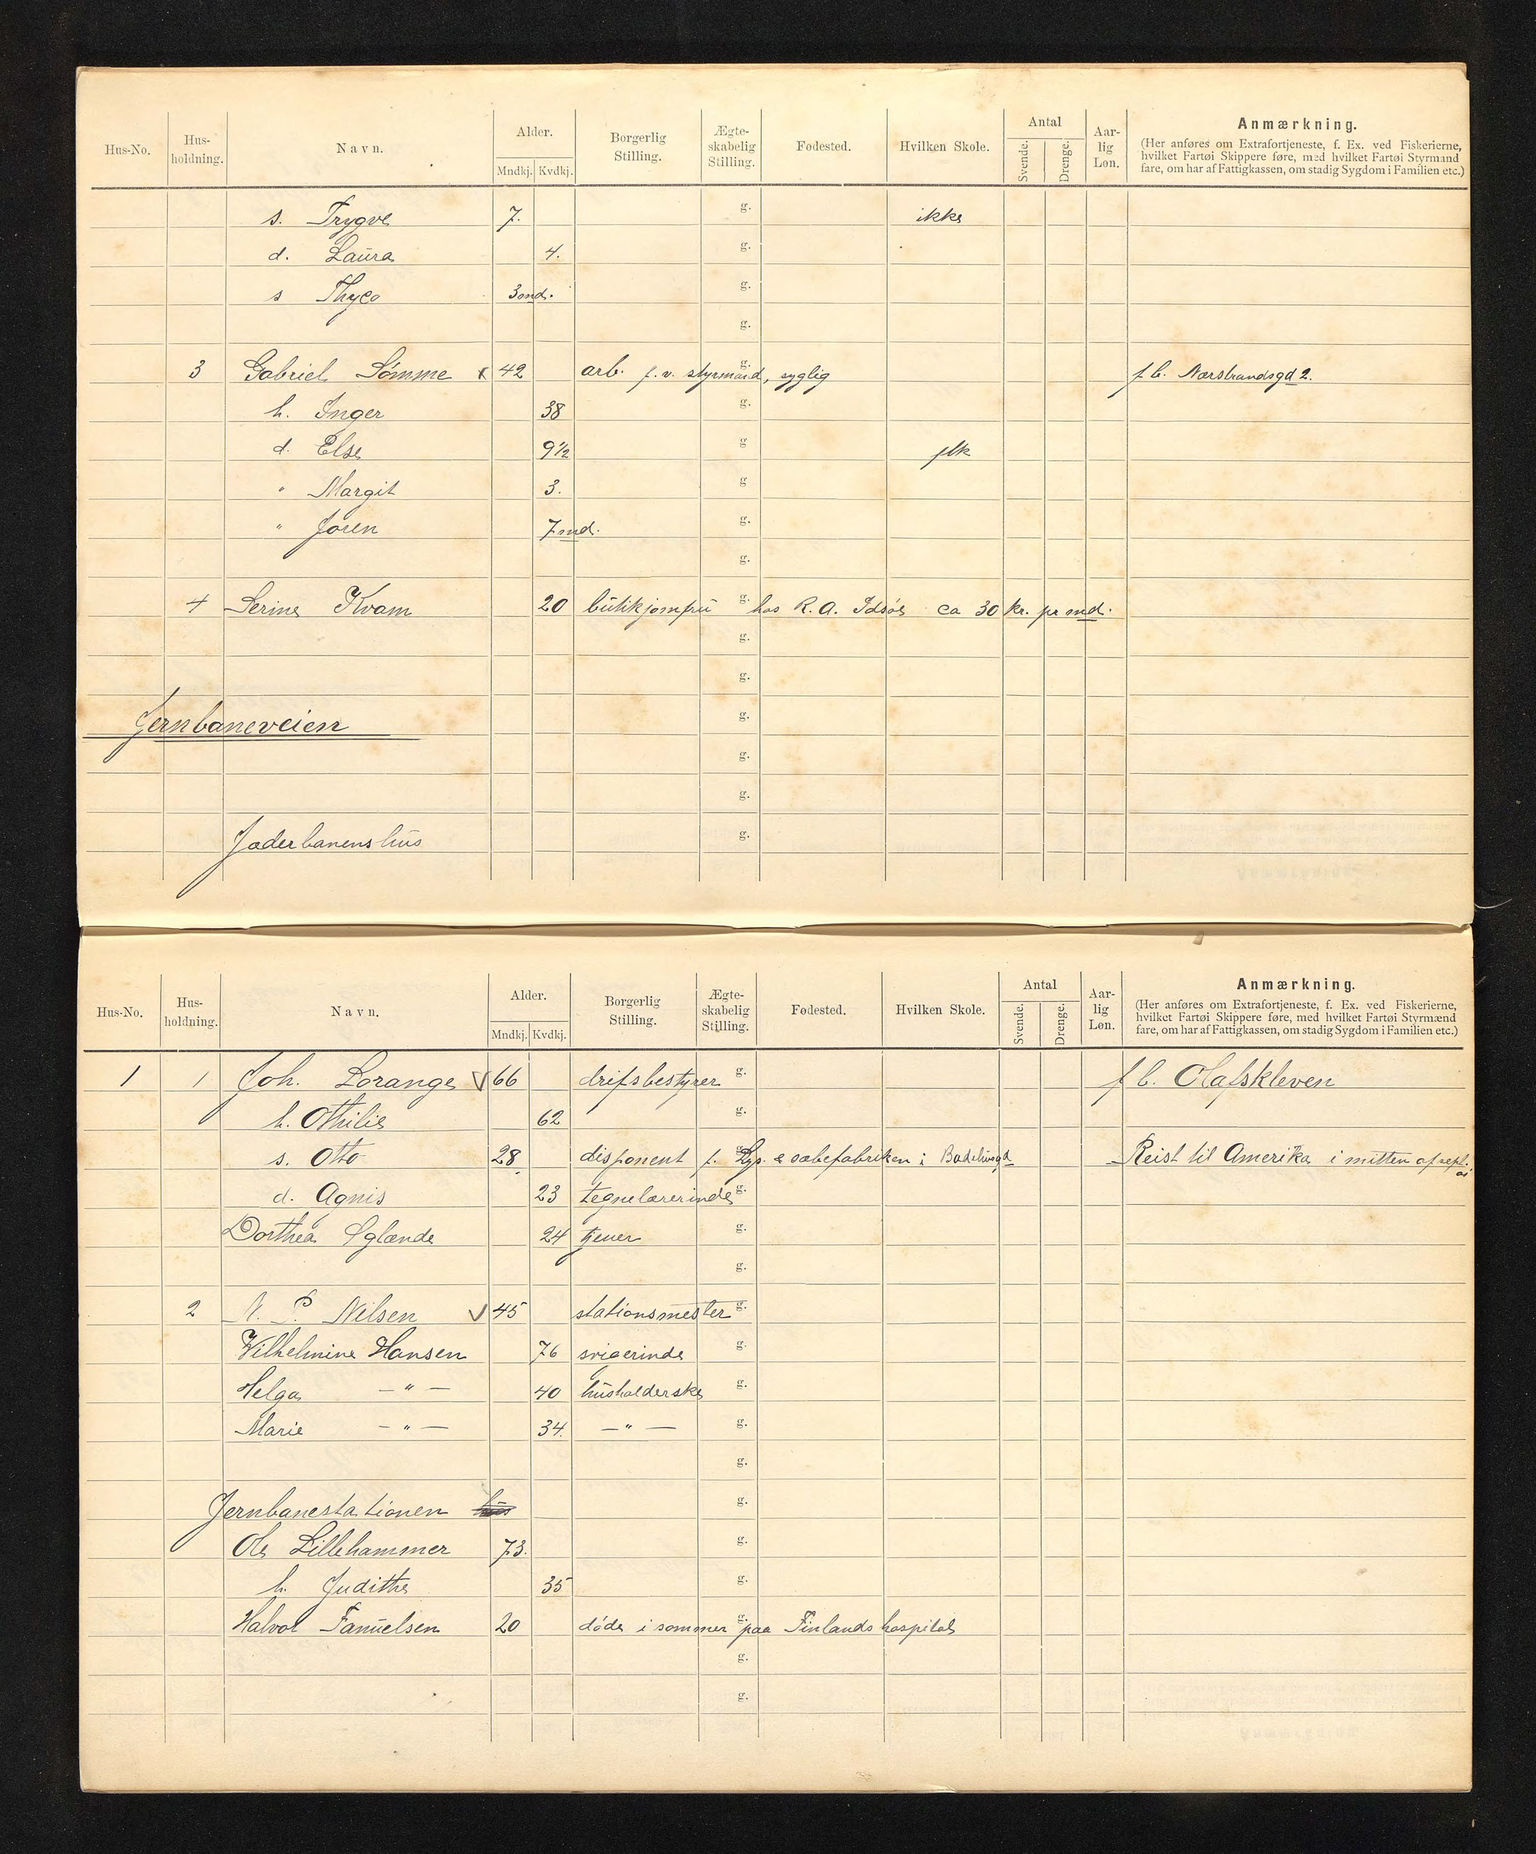 Hus-No. Hus-holdning. Navn. Alder. Mndkj. Kvdkj. Borgerlig Stilling. Ægte-skabelig Stilling. Fødested. Hvilken Skole. Antal Svende. Drenge. Aar-lig Løn. Anmærkning.
(Her anføres om Extrafortjeneste, f. Ex. ved Fiskerierne,
hvilket Fartøi Skippere føre, med hvilket Fartøi Styrmænd
fare, om har af Fattigkassen, om stadig Sygdom i Familien etc.)
s. Trygve 7. g. ikke
d. Laura 4. g.
s Thyco 3 md. g.
g.
3 Gabriel Sømme x 42 arb. f. v. styrmand, syglig g. f b. Nærstrandsgd 2.
h. Inger 38 g.
d. Else 9 1/2 g flk
" Margit 3. g
" Joren 7 md. g.
g.
4 Serine Kvam 20 butikjomfru g. hos R. A. Idsøe ca 30 kr. pr md.
g.
g.
Jernbaneveien g.
g.
g.
Jæderbanens hus g.
Hus-No. Hus-holdning. Navn. Alder. Mndkj. Kvdkj. Borgerlig Stilling. Ægte-skabelig Stilling. Fødested. Hvilken Skole. Antal Svende. Drenge. Aar-lig Løn. Anmærkning.
(Her anføres om Extrafortjeneste, f. Ex. ved Fiskerierne,
hvilket Fartøi Skippere føre, med hvilket Fartøi Styrmænd
fare, om har af Fattigkassen, om stadig Sygdom i Familien etc.)
1 1 Joh. Lorange v 66 drifsbestyrer g. f b. Olafskleven
h. Othilie 62 g.
s. Otto 28 disponent f. Lys. & sæbefabriken i g. Reist til Amerika i mitten af sept.
d. Agnis 23 tegnelærerinde g.
Dorthea Øglænde 24 tjener g.
g.
2 N. P. Nilsen v 45 stationsmester g.
Wilhelmine Hansen 76 svigerinde g.
Helga — " — 40 husholderske g.
Marie — " — 34. — " — g.
g.
Jernbanestationen hus g.
Ole Lillehammer 73. g.
h. Judithe 35 g.
Halvor Fanuelsen 20 døde i sommer paa Finlands hospital g.
g.
g.